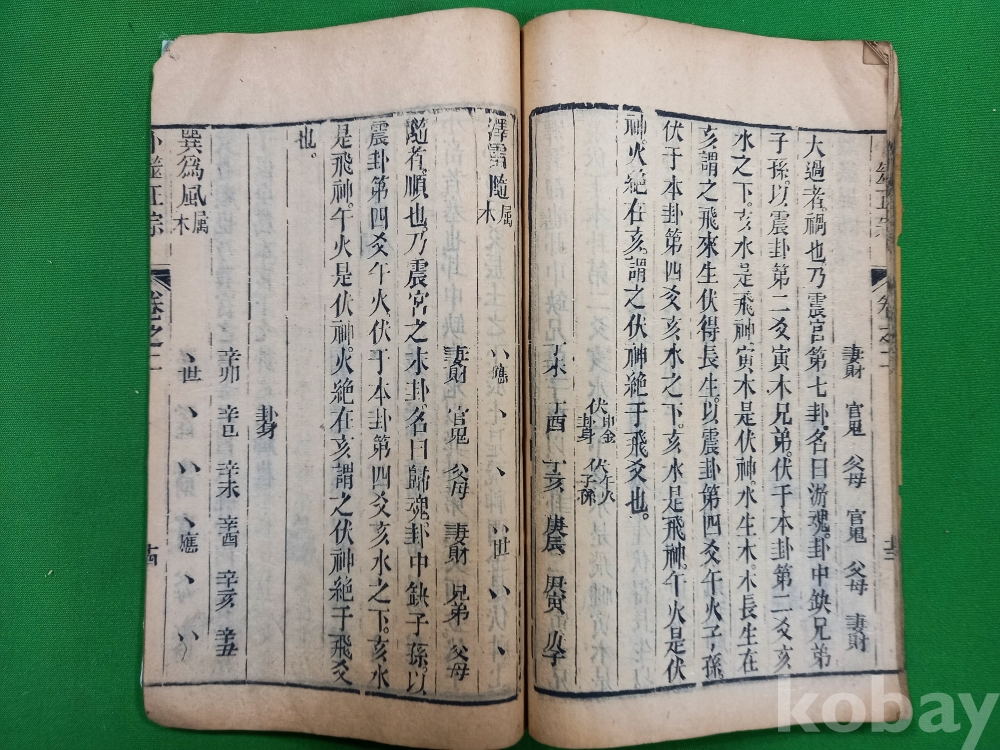 妻財 官鬼 父母 官鬼 父母 妻財
大過者禍也乃震宮第七卦名曰游魂卦中缺兄弟
子孫以震卦第二爻寅木兄弟伏于本卦第二爻亥
水之下。亥水是飛神寅木是伏神。水生木。木長生在
亥謂之飛來生伏得長生。以震卦第四爻午火子孫
伏于本卦第四爻亥水之下。亥水是飛神。午火是伏
神。火絕在亥。謂之伏神絕于飛爻也。
伏申金 伏午火
卦身 伏子孫
丁未 丁酉 丁亥 庚辰 庚寅 庚子
澤雷隨屬木 應 世
妻財 官鬼 父母 妻財 兄弟 父母
隨者。順也。乃震宮之末卦。名曰歸魂。卦中缺子孫以
震卦第四爻午火伏于本卦第四爻亥水之下。亥水
是飛神。午火是伏神。火絕在亥謂之伏神絕于飛爻
也。
卦身
辛卯 辛巳 辛未 辛酉 辛亥 辛丑
巽為風屬木 世 應
卜筮正宗 卷之二 十四
kobay